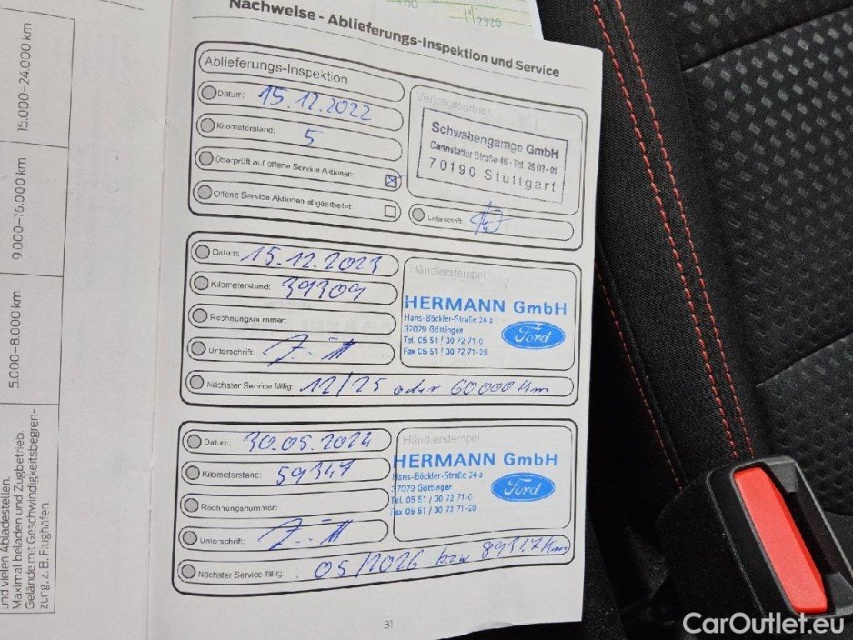 2320
15.000–24.000 km
9.000–15.000 km
5.000–8.000 km
und vielen Abladestellen.
Maximal beladen und Zugbetrieb.
Gelände mit Geschwindigkeitsbegren-
zung, z. B. Flughafen.
Nachweise - Ablieferungs-Inspektion und Service
Ablieferungs-Inspektion
Datum: 15.12.2022
Kilometerstand: 5
Überprüft auf offene Service Aktionen:
Offene Service Aktionen abgearbeitet:
Vertragspartner
Schwabengarage GmbH
Cannstatter Straße 46 - Tel.
70190 Stuttgart
Unterschrift:
Datum: 15.12.2023
Kilometerstand: 39309
Rechnungsnummer:
Unterschrift:
Nächster Service fällig: 12/25 oder 60000 km
Händlerstempel
HERMANN GmbH
Hans-Böckler-Straße 24 a
37079 Göttingen
Tel. 05 51 / 30 72 71-0
Fax 05 51 / 30 72 71-29
Ford
Datum: 30.05.2024
Kilometerstand: 59347
Rechnungsnummer:
Unterschrift:
Nächster Service fällig: 05/2026 bzw 89347 km
Händlerstempel
HERMANN GmbH
Hans-Böckler-Straße 24 a
37079 Göttingen
Tel. 05 51 / 30 72 71-0
Fax 05 51 / 30 72 71-29
Ford
31
CarOutlet.eu